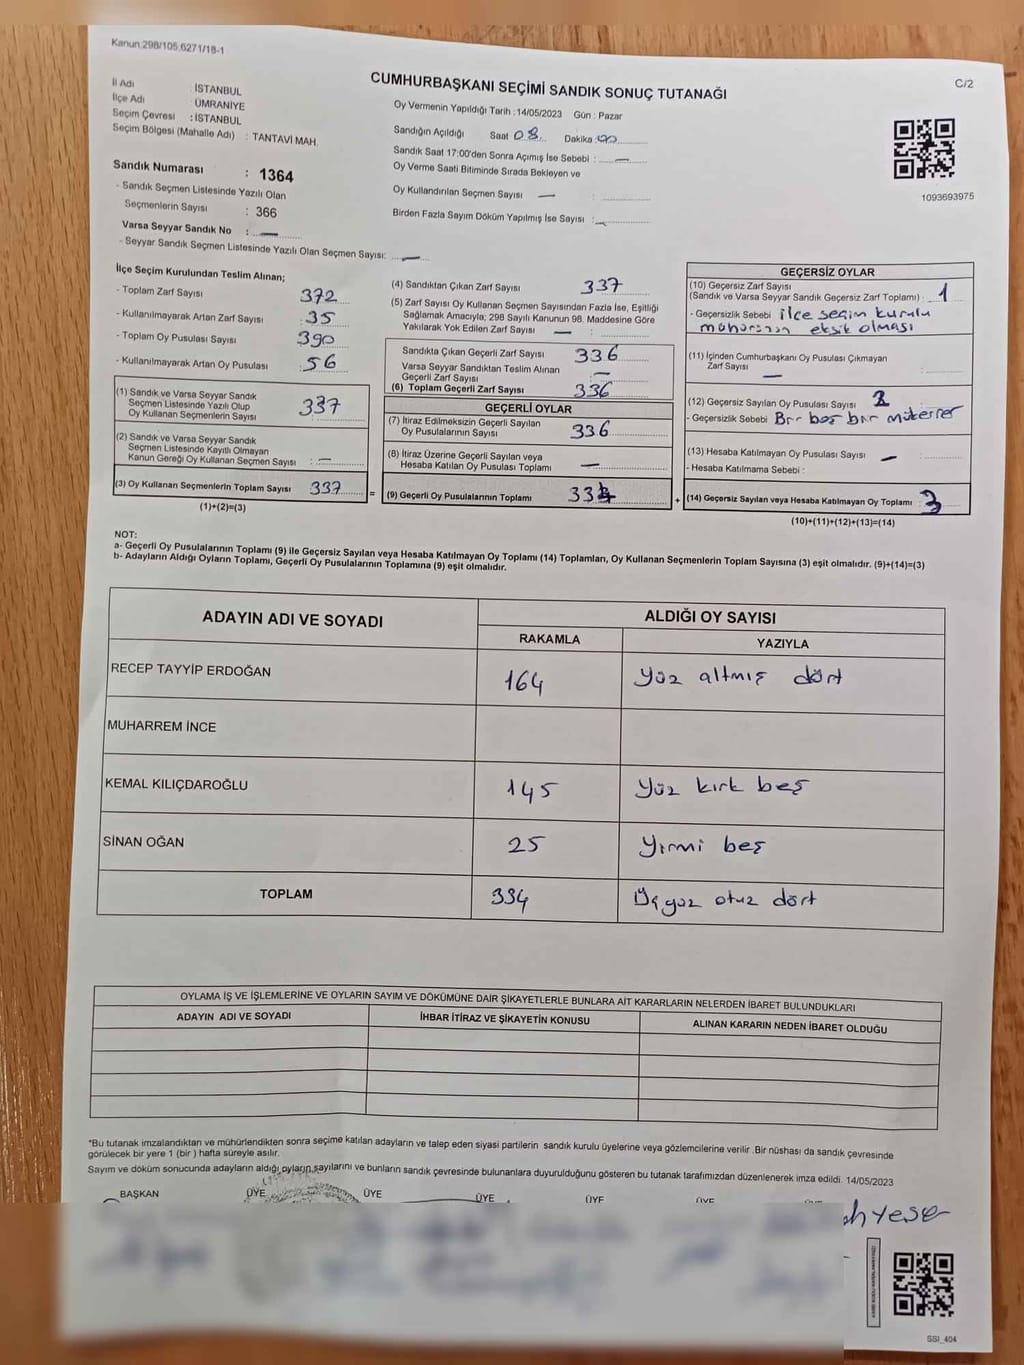 Kanun.298/105,6271/18-1
CUMHURBAŞKANI SEÇİMİ SANDIK SONUÇ TUTANAĞI
C/2
İl Adı : İSTANBUL
İlçe Adı : ÜMRANİYE
Seçim Çevresi : İSTANBUL
Seçim Bölgesi (Mahalle Adı) : TANTAVİ MAH.
Oy Vermenin Yapıldığı Tarih :14/05/2023 Gün : Pazar
Sandığın Açıldığı Saat 08 Dakika 00
Sandık Saat 17:00'den Sonra Açımış İse Sebebi : —
Oy Verme Saati Bitiminde Sırada Bekleyen ve
Oy Kullandırılan Seçmen Sayısı — :
Birden Fazla Sayım Döküm Yapılmış İse Sayısı : —
1093693975
Sandık Numarası : 1364
- Sandık Seçmen Listesinde Yazılı Olan
Seçmenlerin Sayısı : 366
Varsa Seyyar Sandık No : —
- Seyyar Sandık Seçmen Listesinde Yazılı Olan Seçmen Sayısı: —
İlçe Seçim Kurulundan Teslim Alınan;
- Toplam Zarf Sayısı 372
- Kullanılmayarak Artan Zarf Sayısı : 35
- Toplam Oy Pusulası Sayısı 390
- Kullanılmayarak Artan Oy Pusulası : 56
(1) Sandık ve Varsa Seyyar Sandık
Seçmen Listesinde Yazılı Olup
Oy Kullanan Seçmenlerin Sayısı 337
(2) Sandık ve Varsa Seyyar Sandık
Seçmen Listesinde Kayıtlı Olmayan
Kanun Gereği Oy Kullanan Seçmen Sayısı : —
(3) Oy Kullanan Seçmenlerin Toplam Sayısı 337 =
(1)+(2)=(3)
(4) Sandıktan Çıkan Zarf Sayısı 337
(5) Zarf Sayısı Oy Kullanan Seçmen Sayısından Fazla İse, Eşitliği
Sağlamak Amacıyla; 298 Sayılı Kanunun 98. Maddesine Göre
Yakılarak Yok Edilen Zarf Sayısı — :
Sandıkta Çıkan Geçerli Zarf Sayısı 336
Varsa Seyyar Sandıktan Teslim Alınan
Geçerli Zarf Sayısı —
(6) Toplam Geçerli Zarf Sayısı 336
GEÇERLİ OYLAR
(7) İtiraz Edilmeksizin Geçerli Sayılan
Oy Pusulalarının Sayısı 336
(8) İtiraz Üzerine Geçerli Sayılan veya
Hesaba Katılan Oy Pusulası Toplamı —
(9) Geçerli Oy Pusulalarının Toplamı 334 +
GEÇERSİZ OYLAR
(10) Geçersiz Zarf Sayısı
(Sandık ve Varsa Seyyar Sandık Geçersiz Zarf Toplamı) : 1
- Geçersizlik Sebebi ilçe seçim kurulu
mührünün eksik olması
(11) İçinden Cumhurbaşkanı Oy Pusulası Çıkmayan
Zarf Sayısı —
(12) Geçersiz Sayılan Oy Pusulası Sayısı 2
- Geçersizlik Sebebi Bir boş bir mükerrer
(13) Hesaba Katılmayan Oy Pusulası Sayısı —
- Hesaba Katılmama Sebebi :
(14) Geçersiz Sayılan veya Hesaba Katılmayan Oy Toplamı : 3
(10)+(11)+(12)+(13)=(14)
NOT:
a- Geçerli Oy Pusulalarının Toplamı (9) ile Geçersiz Sayılan veya Hesaba Katılmayan Oy Toplamı (14) Toplamları, Oy Kullanan Seçmenlerin Toplam Sayısına (3) eşit olmalıdır. (9)+(14)=(3)
b- Adayların Aldığı Oyların Toplamı, Geçerli Oy Pusulalarının Toplamına (9) eşit olmalıdır.
ADAYIN ADI VE SOYADI ALDIĞI OY SAYISI
RAKAMLA YAZIYLA
RECEP TAYYİP ERDOĞAN 164 Yüz altmış dört
MUHARREM İNCE
KEMAL KILIÇDAROĞLU 145 Yüz kırk beş
SİNAN OĞAN 25 Yirmi beş
TOPLAM 334 Üçyüz otuz dört
OYLAMA İŞ VE İŞLEMLERİNE VE OYLARIN SAYIM VE DÖKÜMÜNE DAİR ŞİKAYETLERLE BUNLARA AİT KARARLARIN NELERDEN İBARET BULUNDUKLARI
ADAYIN ADI VE SOYADI İHBAR İTİRAZ VE ŞİKAYETİN KONUSU ALINAN KARARIN NEDEN İBARET OLDUĞU
*Bu tutanak imzalandıktan ve mühürlendikten sonra seçime katılan adayların ve talep eden siyasi partilerin sandık kurulu üyelerine veya gözlemcilerine verilir .Bir nüshası da sandık çevresinde
görülecek bir yere 1 (bir ) hafta süreyle asılır.
Sayım ve döküm sonucunda adayların aldığı oyların sayılarını ve bunların sandık çevresinde bulunanlara duyurulduğunu gösteren bu tutanak tarafımızdan düzenlenerek imza edildi. 14/05/2023
BAŞKAN ÜYE ÜYE ÜYE ÜYE ÜYE
SSI_404